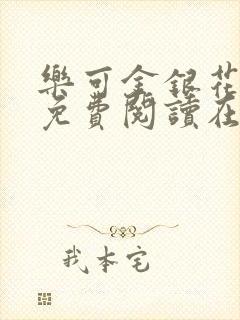 樂可金銀花
免費閱讀在
我本宅